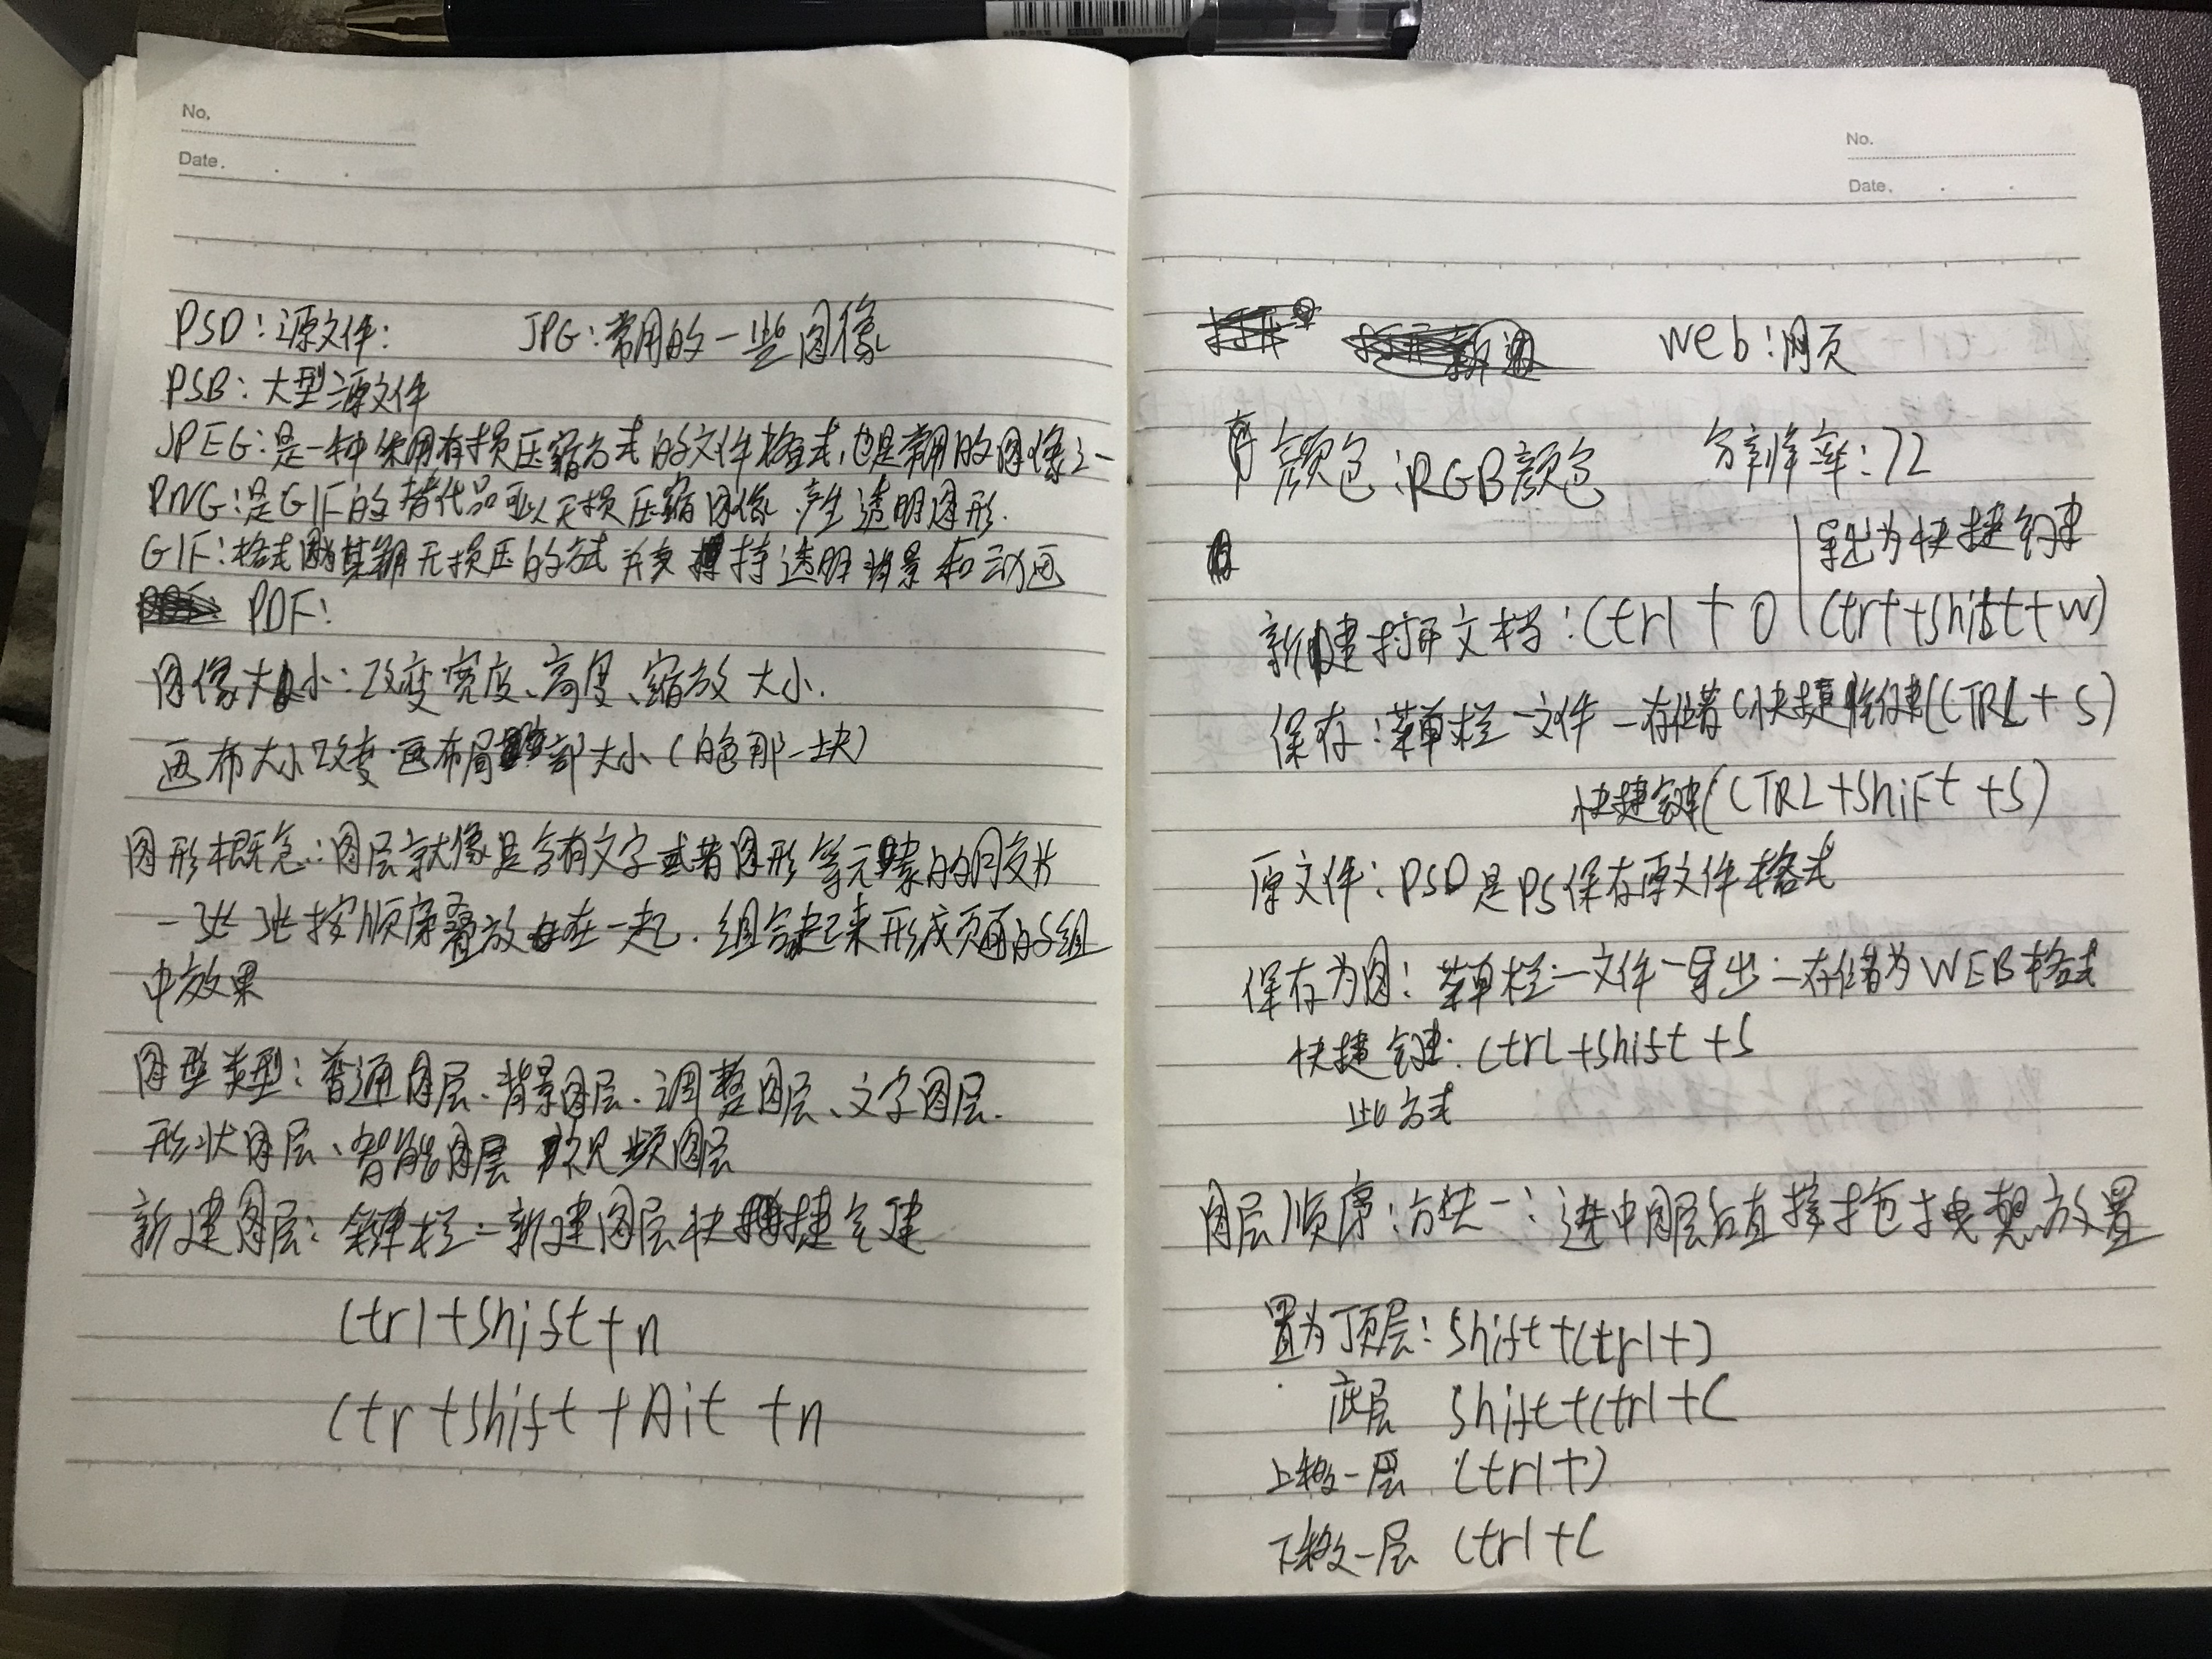 No.
Date.
PSD：源文件： JPG：常用的一些图像
PSB：大型源文件
JPEG：是一种采用有损压缩方式的文件格式，也是常用的图像之一
PNG：是GIF的替代品可以无损压缩图像 产生透明图形.
GIF：格式 无损压的方式并支持透明背景和动画
PDF：
图像大小：改变宽度、高度、缩放大小.
画布大小改变画布局部大小（白色那一块）
图形概念：图层就像是含有文字或者图形等元素的胶片
一张张按顺序叠放在一起．组合起来形成页面的组
中效果
图型类型：普通图层、背景图层、调整图层、文字图层.
形状图层、智能图层 视频图层
新建图层： 栏－新建图层快捷键
Ctrl+shift+n
Ctr+shift+Ait+n
No.
Date.
web：网页
颜色：RGB颜色 分辨率：72
导出为快捷键
新建打开文档：Ctrl+O Ctrt+shift+W)
保存：菜单栏－文件－存储 快捷键(CTRL+S)
快捷键(CTRL+ShiFt+S)
原文件：PSD是PS保存原文件格式
保存为图：菜单栏－文件－导出－存储为WEB格式
快捷键：CtrL+Shift+S
此方式
图层顺序：方法一：选中图层后直接拖拽想放置
置为顶层：Shift+Ctrl+]
底层 Shift+Ctrl+[
上移一层 Ctrl+]
下移一层 Ctrl+[